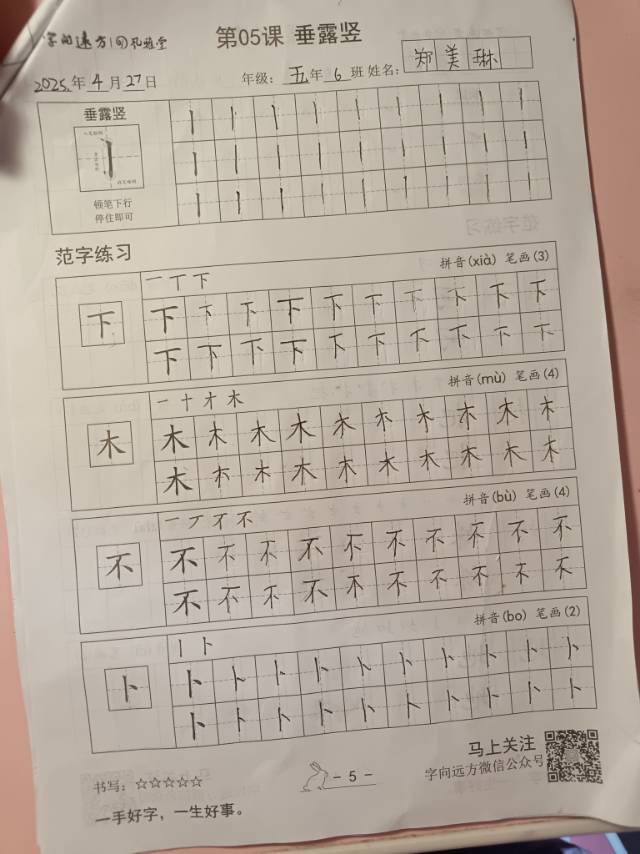 字向远方
第05课 垂露竖
2025.年4月27日 年级：五年6班 姓名：郑美琳
垂露竖
顿笔下行
停住即可
范字练习
一丅下 拼音(xià) 笔画(3)
下 下下下下下下下下下下
下下下下下下下下下下
一十才木 拼音(mù) 笔画(4)
木 木木木木木木木木木木
木木木木木木木木木木
一丆不不 拼音(bù) 笔画(4)
不 不不不不不不不不不不
不不不不不不不不不不
丨卜 拼音(bo) 笔画(2)
卜 卜卜卜卜卜卜卜卜卜卜
卜卜卜卜卜卜卜卜卜卜
书写：☆☆☆☆☆
一手好字，一生好事。
- 5 -
马上关注
字向远方微信公众号